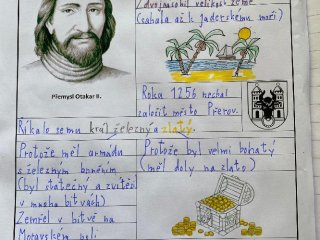 Zdvojnásobil velikost země
(sahala až k Jaderskému moři)
Přemysl Otakar II.
Roku 1256 nechal
založit město Přerov.
Říkalo se mu král železný a zlatý.
Protože měl armádu
s železným brněním
(byl statečný a zvítězil
v mnoha bitvách)
Zemřel v bitvě na
Moravském poli
Protože byl velmi bohatý
(měl doly na zlato)